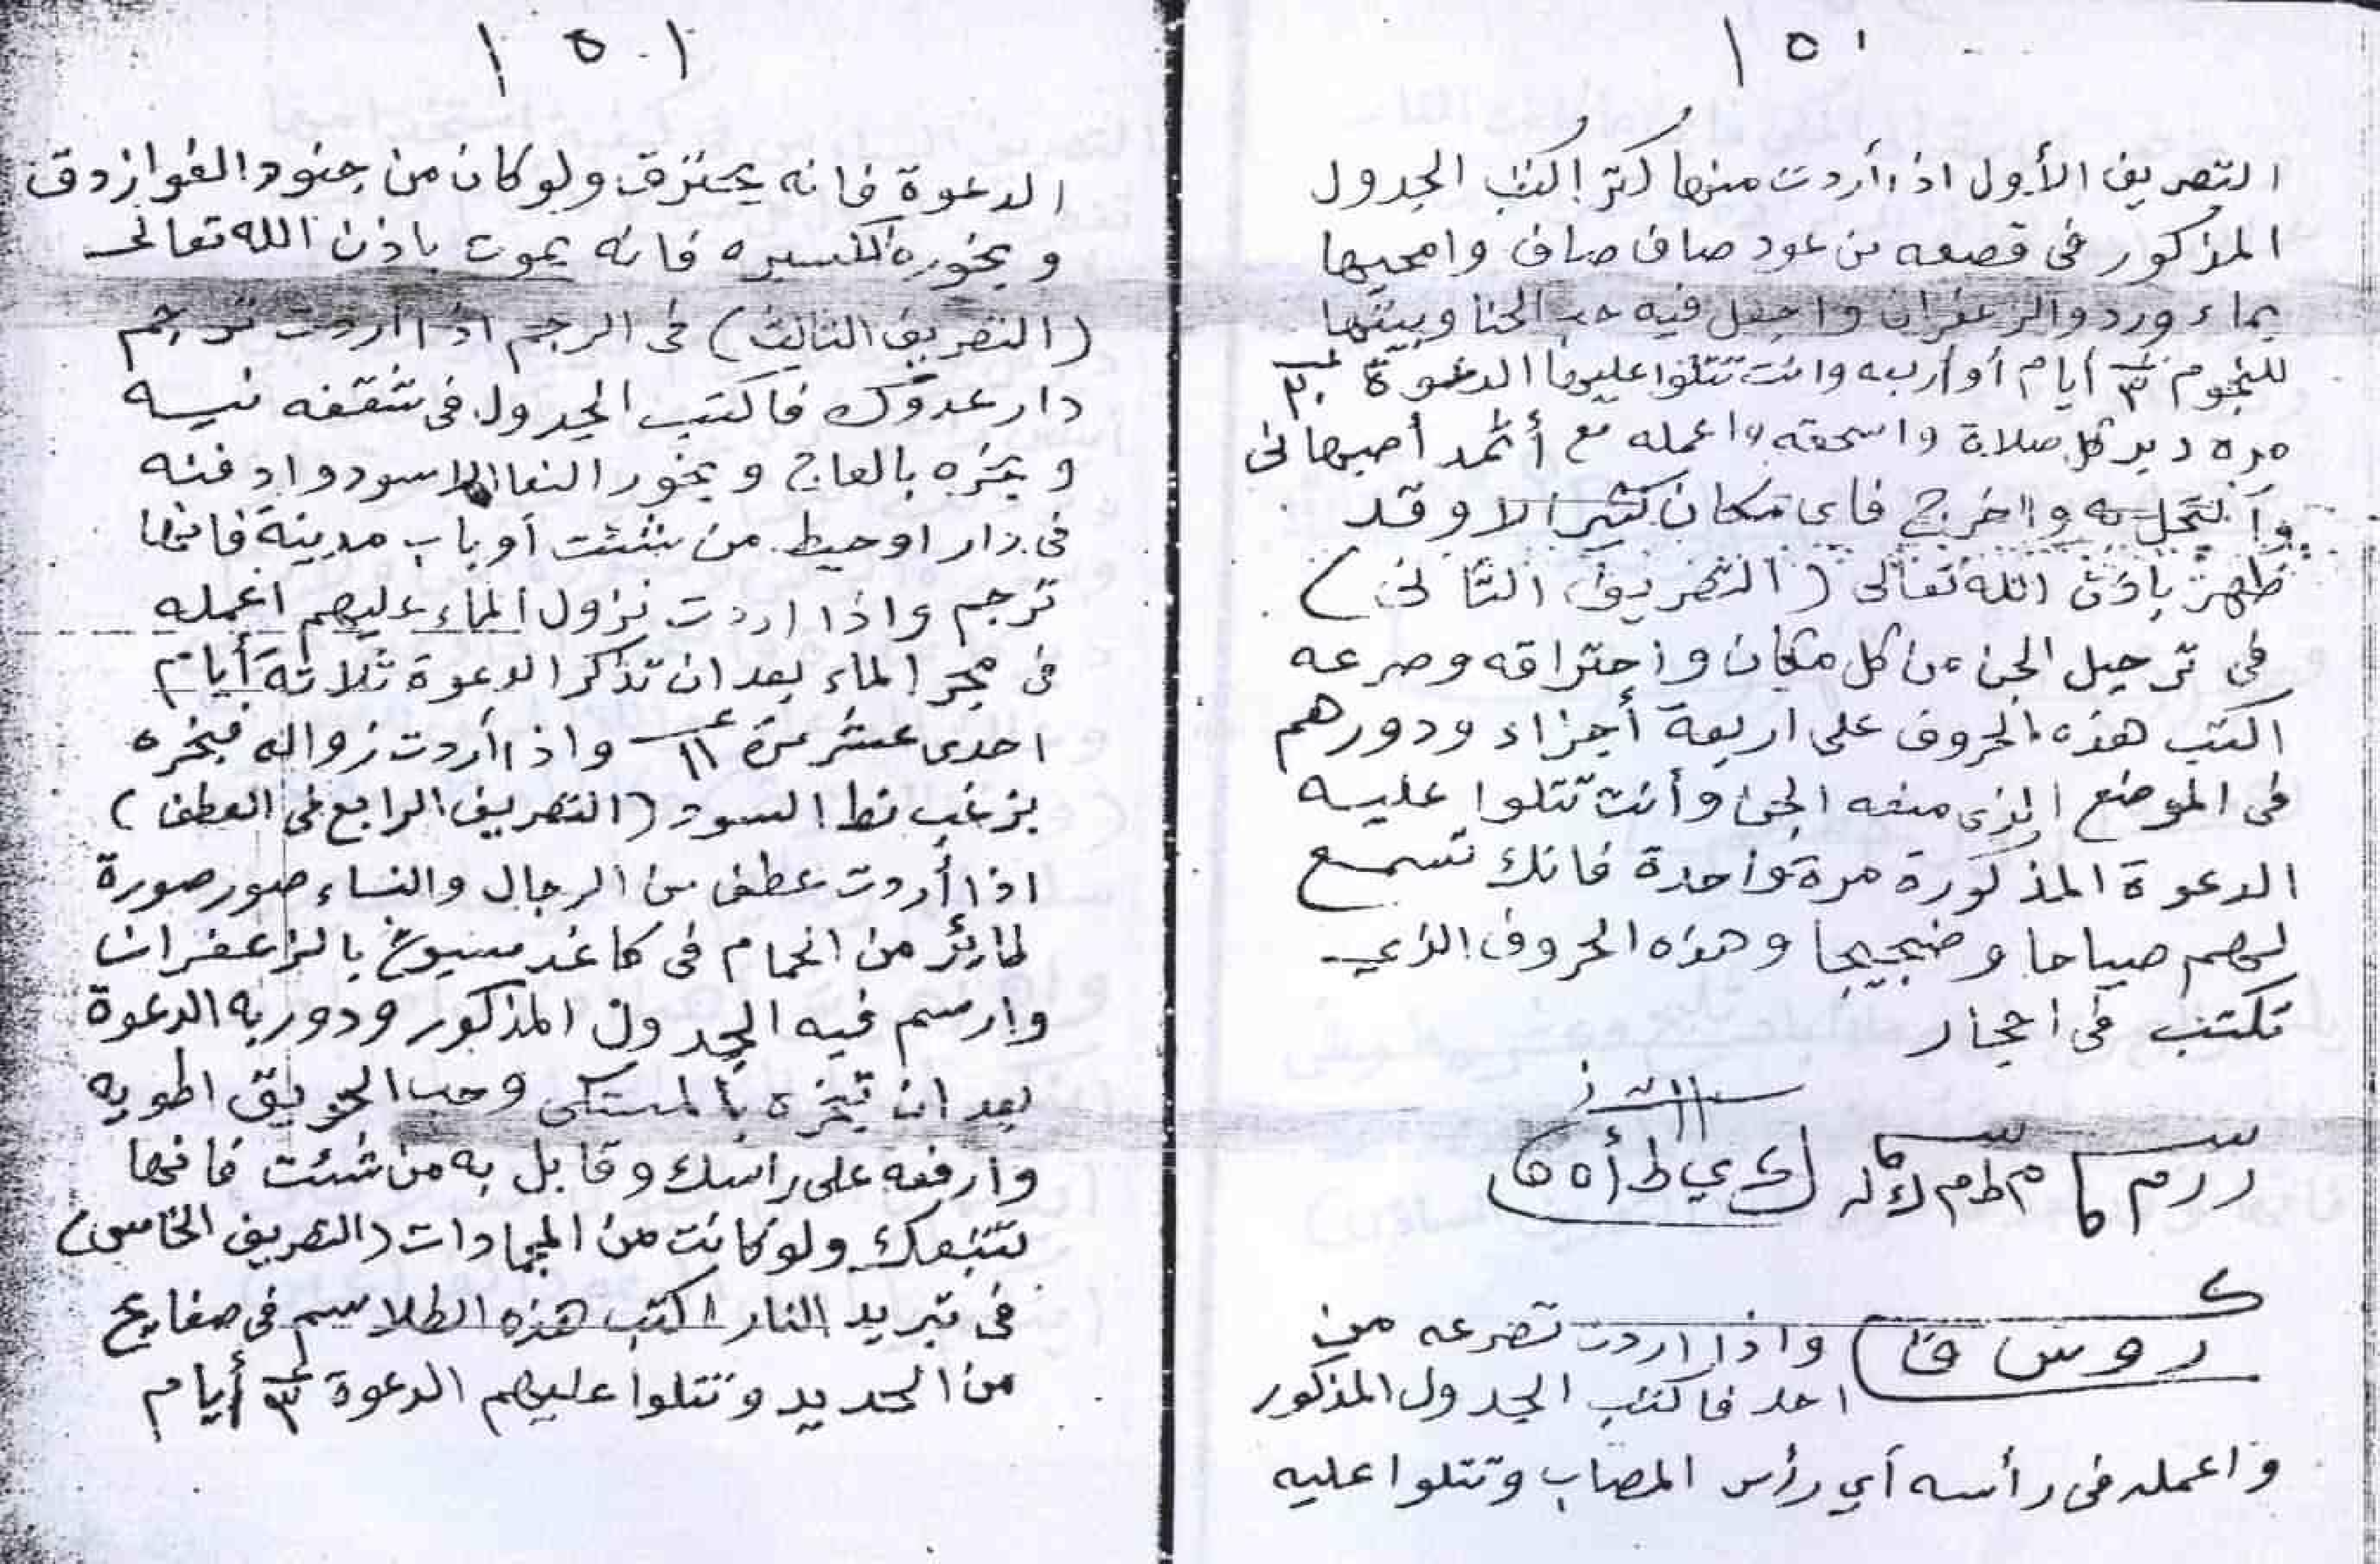 ١٥٠
التصريف الأول اذا أردت منها كثرا كتب الجدول
المذكور فى قصعه من عود صاف صاف وامحيها
بماء ورد والزعفران واجعل فيه حب الحنا وبيتها
للنجوم ٣ أيام أو أربعه وانت تتلوا عليها الدعوة
مره دبر كل صلاة واسحقه واعمله مع أثمد أصبهانى
وأكتحل به واخرج فاى مكان كثيرا لا وقد
ظهر باذن الله تعالى (التصريف الثانى)
فى ترحيل الجن من كل مكان واحتراقه وصرعه
اكتب هذه الحروف على اربعة أجزاء ودورهم
فى الموضع الذى منعه الجن وأنت تتلوا عليه
الدعوة المذكورة مرة واحدة فانك تسمع
لهم صياحا وضجيجا وهذه الحروف الذي
تكتب فى احجار
واذا اردت تصرعه من
احد فاكتب الجدول المذكور
واعمله فى رأسه أي رأس المصاب وتتلوا عليه
١٥١
الدعوة فانه يحترق ولو كان من جنود الغوازوق
وبخوره الكسبره فانه يموت باذن الله تعالى
(التصريف الثالث) فى الرجم اذا اردت ترجم
دار عدوك فاكتب الجدول فى شقفه نيسه
وبخره بالعاج وبخور النفا الاسود وادفنه
فى دار او حيط من شئت أو باب مدينة فانها
ترجم واذا اردت نزول الماء عليهم اعمله
فى مجر الماء بعد ان تذكر الدعوة ثلاثة أيام
احدى عشر مرة ١١ واذا أردت زواله فبخره
بزغب نط السود (التصريف الرابع فى العطف)
اذا أردت عطف من الرجال والنساء صور صورة
طائر من الحمام فى كاغد مسيوغ بالزعفران
وارسم فيه الجدول المذكور ودور به الدعوة
بعد ان تبخره بالمستكى وحب الحريق اطويه
وارفعه على راسك وقابل به من شئت فانها
تتبعك ولو كانت من الجمادات (التصريف الخامس)
فى تبريد النار اكتب هذه الطلاسم فى صفايح
من الحديد وتتلوا عليهم الدعوة ٣ أيام